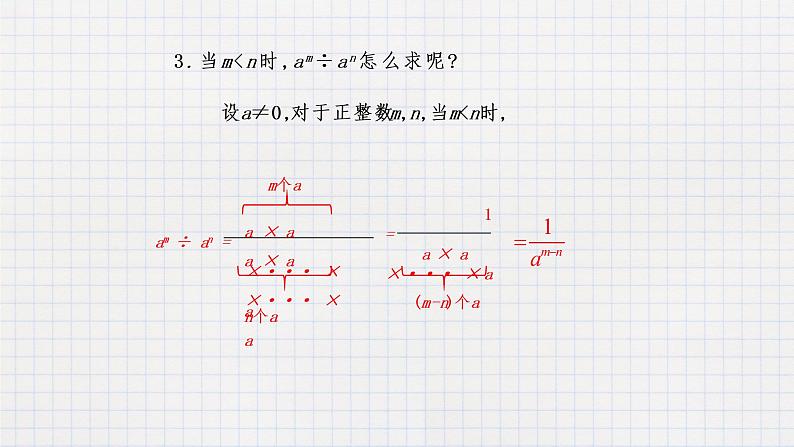 3.当m<n时,aᵐ÷aⁿ怎么求呢?
设a≠0,对于正整数m,n,当m<n时,
m个a
aᵐ ÷ aⁿ =
a × a
× · · · ×
a
a × a
× · · · ×
a
n个a
=
1
a × a
× · · · × a
(m-n)个a
=
1
aᵐ⁻ⁿ